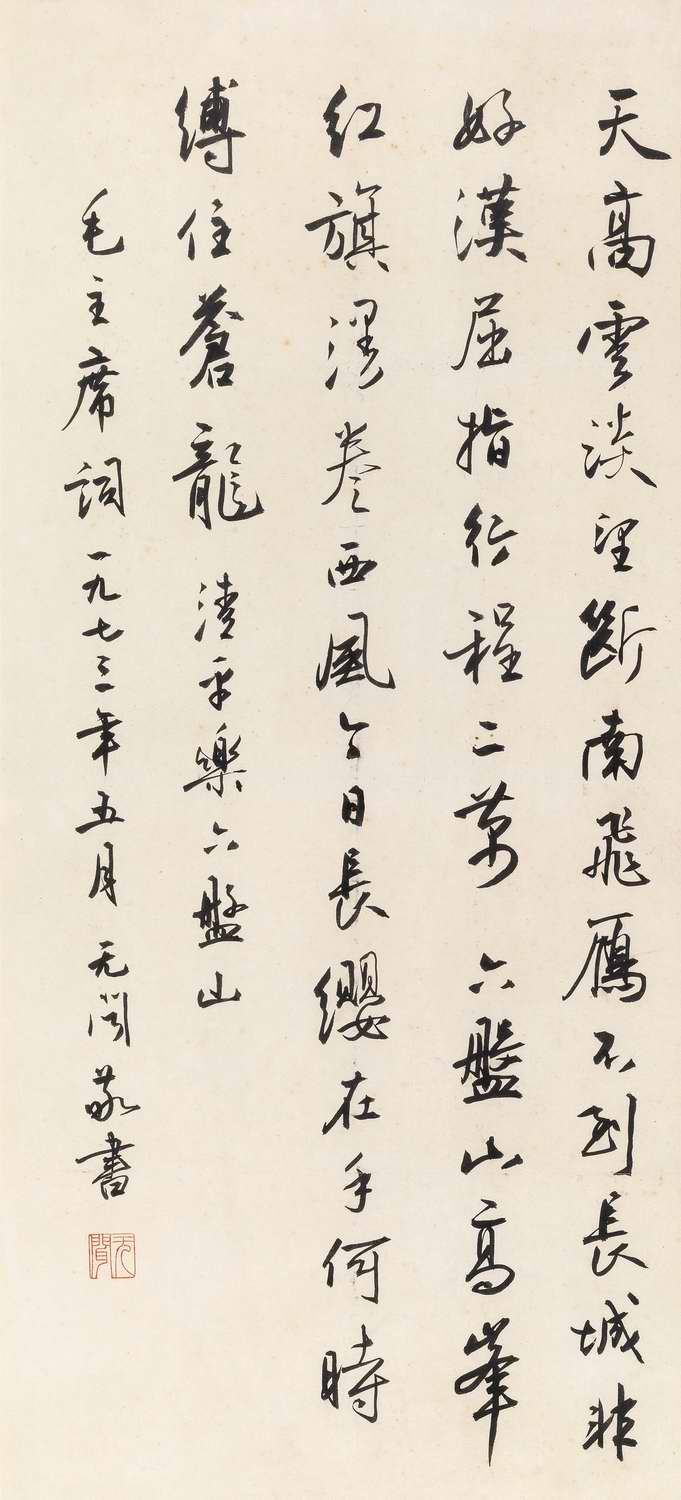 天高雲淡望斷南飛雁不到長城非
好漢屈指行程二萬六盤山高峯
紅旗漫卷西風今日長纓在手何時
縛住蒼龍 清平樂六盤山
毛主席詞一九七三年五月无闻敬書
无聞